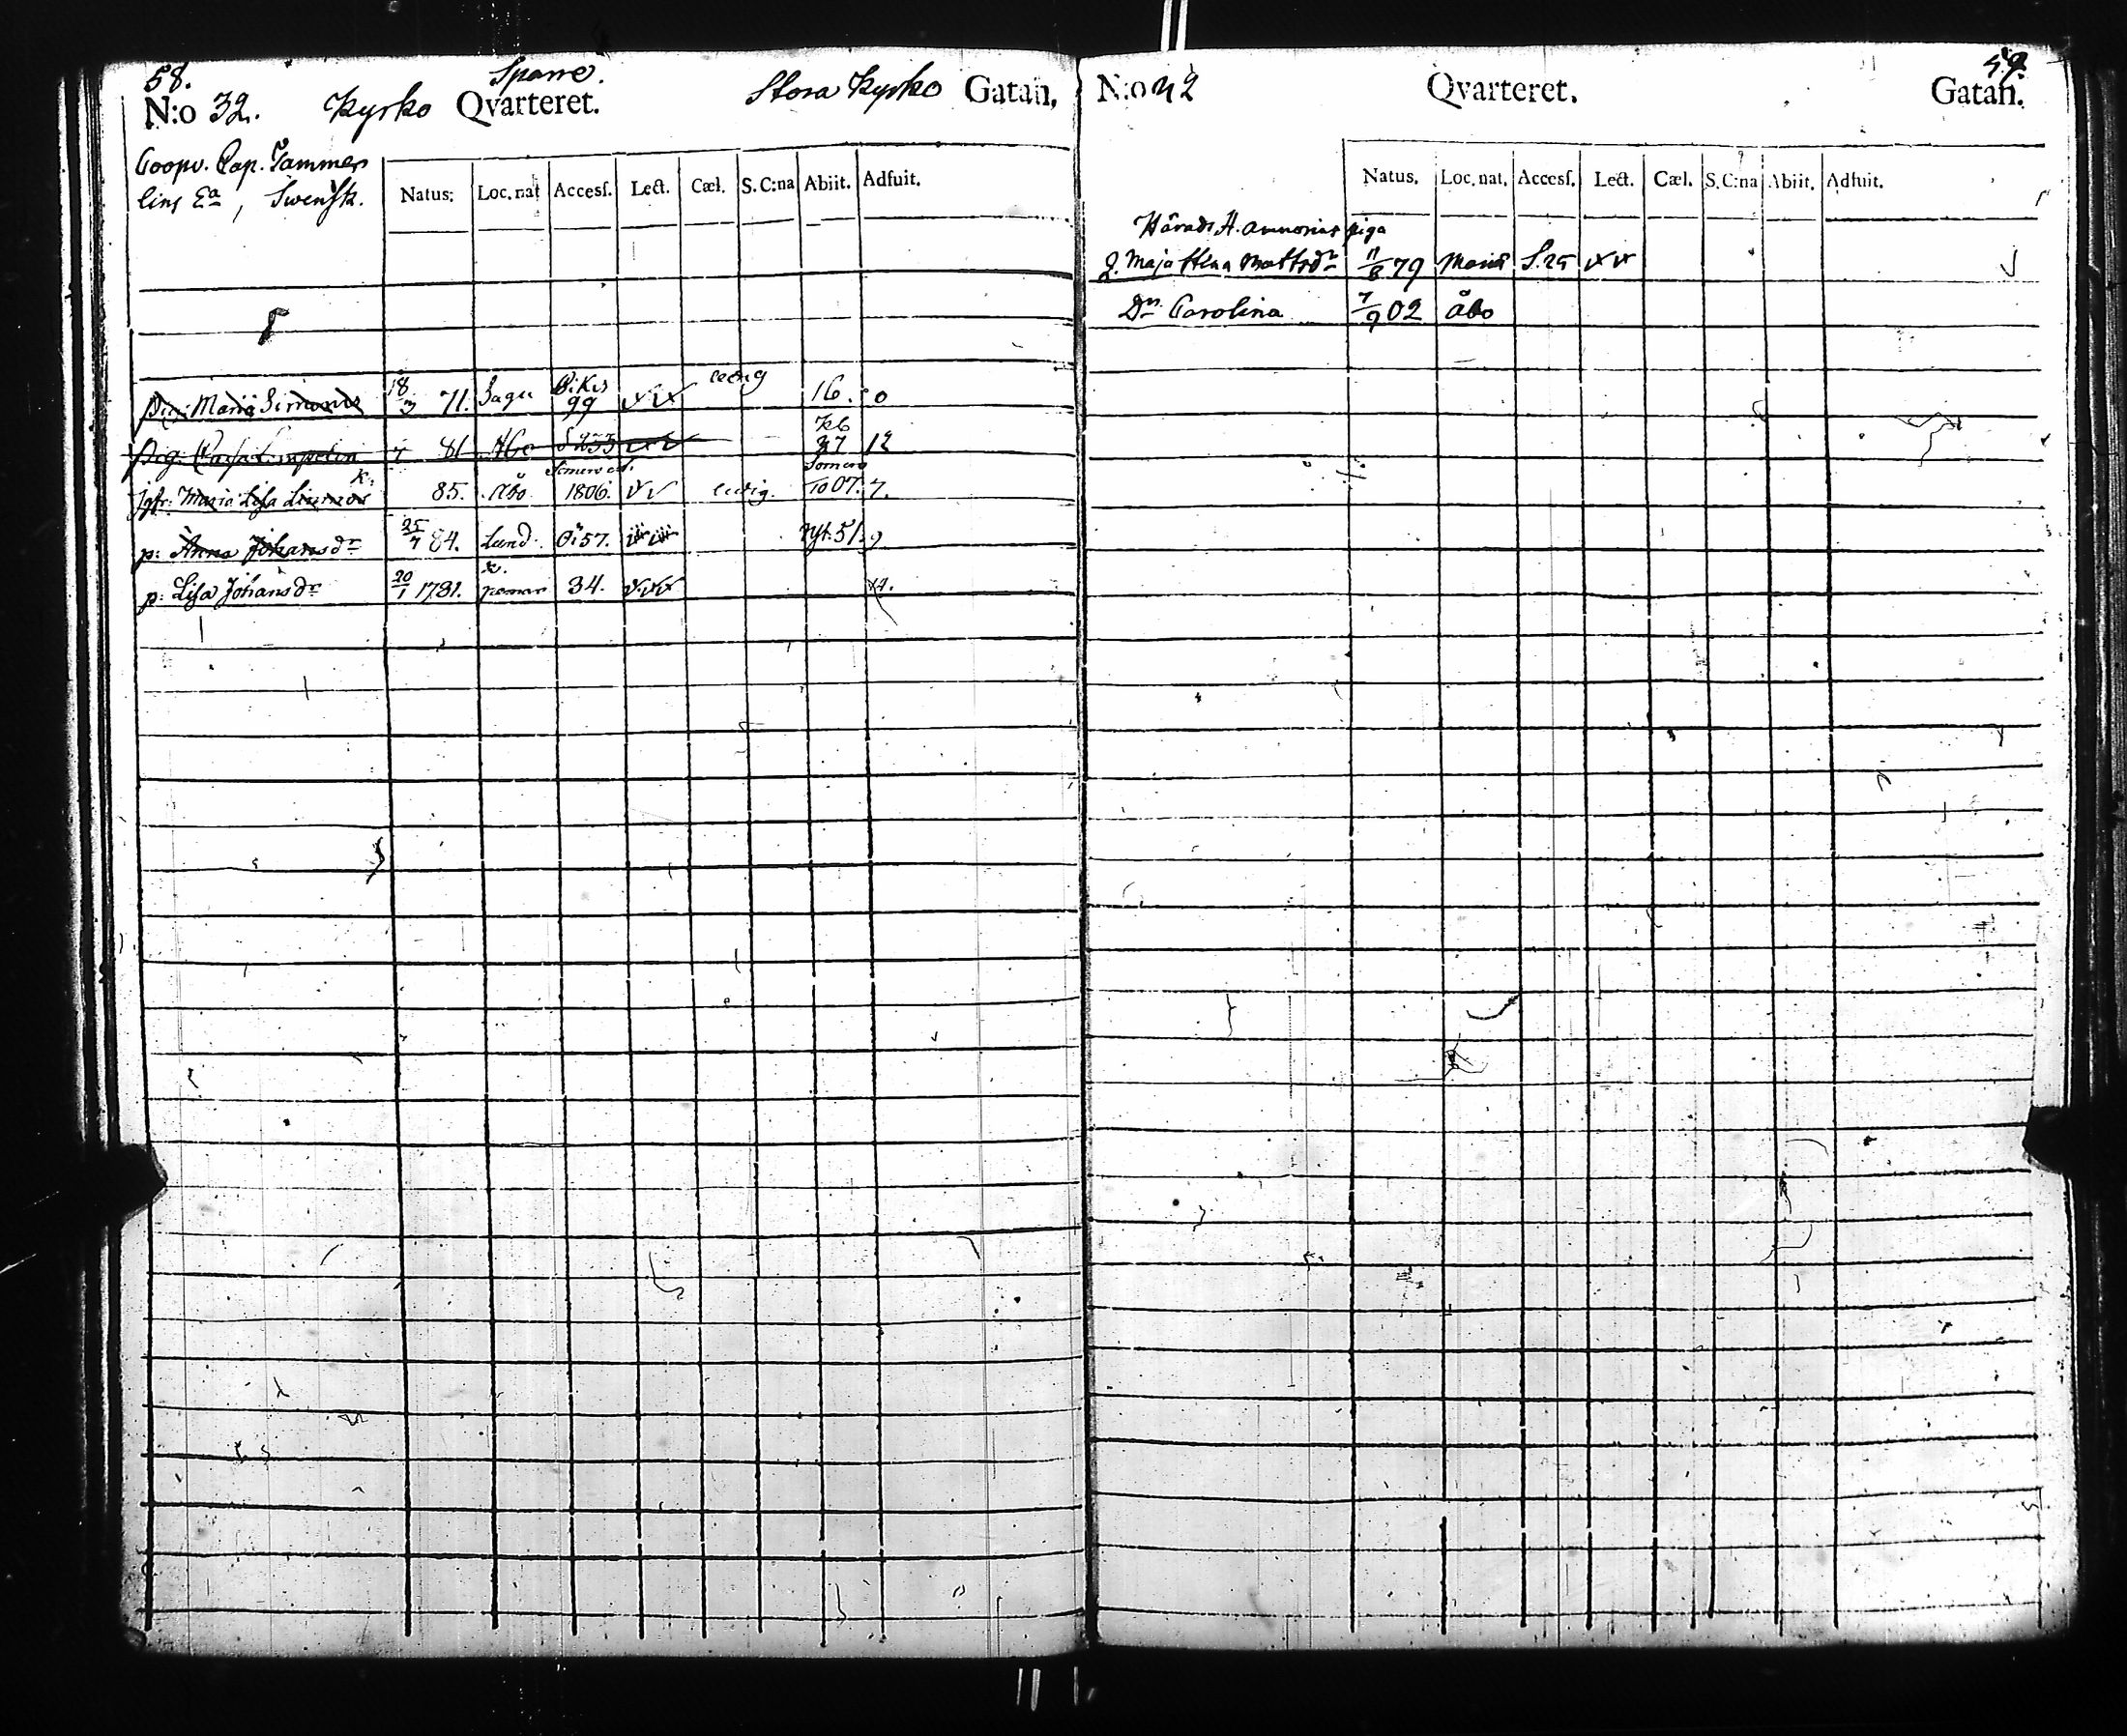 58. Sparre.
N:o 32. Kyrko Qvarteret. Stora Kyrko Gatan.
Coopv. Cap. Tammer
lins Ea, Swensk.
Natus. Loc. nat Accesſ. Lect. Cæl. S. C:na Abiit. Adfuit.
Pig: Maria Simons 18/3 71. Sagu 99 ledig 16. 10
Pig. Cajsa 7 81 Åbo 37 12
jgfr: Maria Lisa 85. Åbo. Somero 1806. ledig. Somero To 07. 7.
p: Anna Johansdr 25/7 84. Lund. Öi 57. Nyk. 51. 9
p: Lisa Johansdr 20/1 1781. pemar 34. 14.
59.
N:o 32 Qvarteret. Gatan.
Natus. Loc. nat. Accesſ. Lect. Cæl. S. C:na Abiit. Adfuit.
Härads H. piga
Maja Stina Mattsdr 11/8 79 S. 25
Dr. Carolina 7/9 02 Åbo